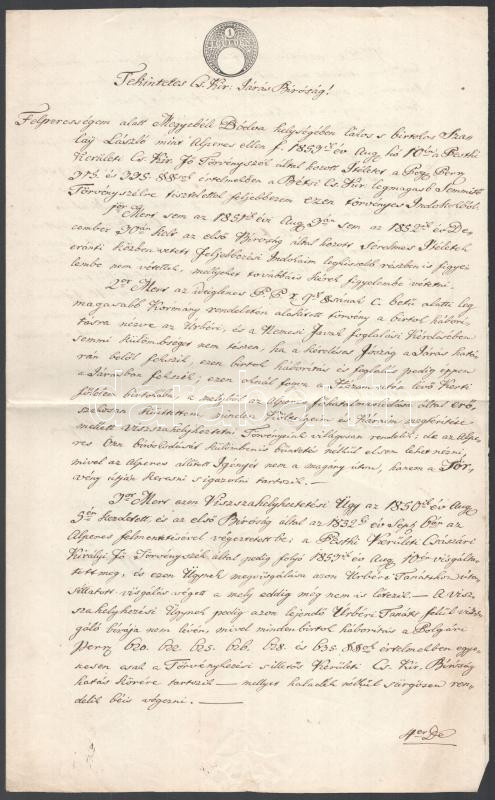 1
GULDEN
Tekintetes Cs. Kir: Járás Biróság!
Felperességem alatt Megyebéli Bódva helységében lakos s birtokos Sza-
laÿ László mint Alperes ellen f. 1853ik év Aug. hó 10én a Pesthi
Kerületi Cs. Kir. Fő Törvényszék által hozott Itéletet a Pol. Perr.
és 325. §§ok értelmében a Bétsi Cs. Kir. legmagasb Semmitő
Törvényszékre tisztelettel feljebbezem ezen törvényes Indokokból.
1ör Mert sem az 1851ik évi Aug. 9én sem az 1852ik év De-
cember 30án kelt az első Biróság által hozott Sérelmes Itéletek
eránti közben vetett feljebbezési Indokaim legkissebb részben is figye-
lembe nem vétettek, mellyeket továbbá is kérek figyelembe vétetni.
2or Mert az ideiglenes P. P. 9ik §sának C betű alatti leg
magasabb Kormány rendeleten alakított törvény a birtok hábor-
ításra nézve az Urbéri, és a Nemesi Javak foglalási Kérelmében
semmi külömbséget nem tészen, ha a kérdéses Jószág a Járás hatá-
rán belől fekszik, ezen birtok háborítás és foglalás pedig éppen
a Járásban fekszik; ezen oknál fogva a Házam után lévő Kerti
földeim birtokába a melyből az Alperes főhatalmaskodása által erő-
szakosan kivettetem minden Költségeim és Káraim megtérítése
mellett Visszahelyheztetni Törvényeink világosan rendelik; de az Alpe-
res Ezen kivoldolás külömbeni büntetés nélkül elsem lehet nézni,
mivel az Alperes állított Igényét nem a magány úton, hanem a Tör-
vény útján keresni s igazolni tartozik.
3or Mert azon Visszahelyheztetési Ügy az 1850ik év Aug.
3án kezdetett, és az első Biróság által az 1852ik év Sept. 6án az
Alperes felmentésével végeztetett be; a Pesthi Kerületi Császári
Királyi Fő Törvényszék által pedig folyó 1853ik év Aug. 10én vizsgálta-
tott meg, és ezen Ügynek megvizsgálása azon Urbéri Tanátshoz úta-
síttatott vizsgálás végett a mely eddig még nem is létezik. — A Vis-
szahelyhezési Ügynek pedig azon lejendő Urbéri Tanáts felül vizs-
gáló birája nem lévén, mivel minden birtok háborítás a Polgári
Perr. 620. 622. 625. 626. 628. és 635. §§ok értelmében egye-
nesen csak a Törvénykezési síkítós Kerületi Cs. Kir. Biróság
hatás körére tartozik — mellyet haladék nélkül sürgősen ren-
delik béis végezni. —
4er De